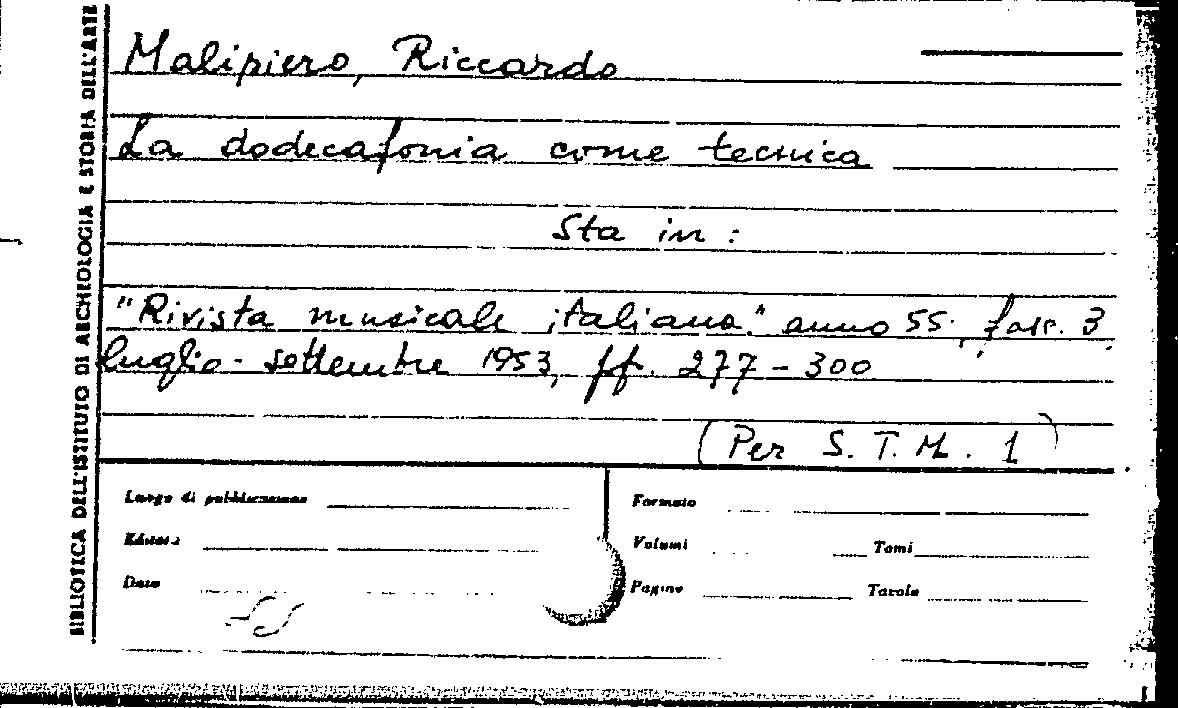 BIBLIOTECA DELL'ISTITUTO DI ARCHEOLOGIA E STORIA DELL'ARTE
Malipiero, Riccardo
La dodecafonia come tecnica
Sta in :
"Rivista musicale italiana." anno 55, fasc. 3,
luglio-settembre 1953, ff. 277 - 300
(Per S. T. M. 1)
Luogo di pubblicazione
Formato
Editore
Volumi
Tomi
Data
Pagine
Tavole